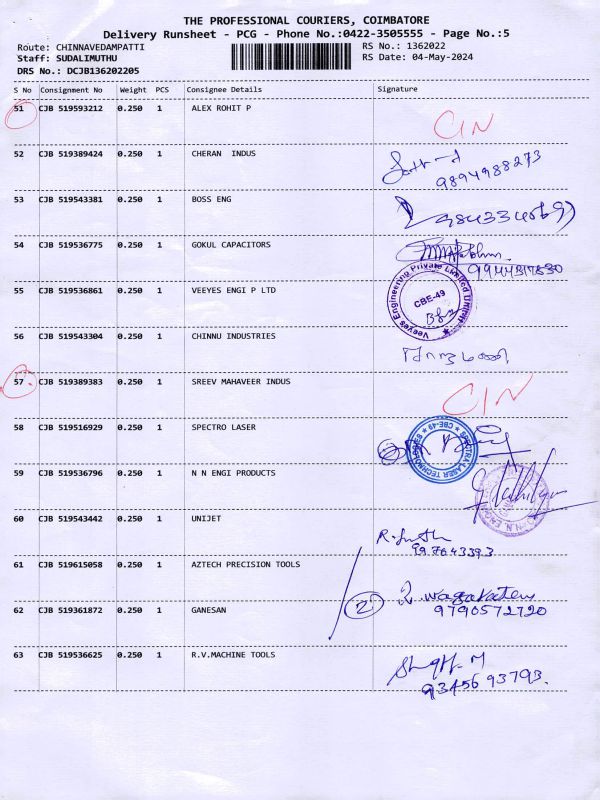 THE PROFESSIONAL COURIERS, COIMBATORE
Delivery Runsheet - PCG - Phone No.:0422-3505555 - Page No.:5
Route: CHINNAVEDAMPATTI RS No.: 1362022
Staff: SUDALIMUTHU RS Date: 04-May-2024
DRS No.: DCJB136202205
S No Consignment No Weight PCS Consignee Details Signature
51 CJB 519593212 0.250 1 ALEX ROHIT P
CIN
52 CJB 519389424 0.250 1 CHERAN INDUS
9894988273
53 CJB 519543381 0.250 1 BOSS ENG
54 CJB 519536775 0.250 1 GOKUL CAPACITORS
Veeyes Engineering Private Limited
CBE-49
55 CJB 519536861 0.250 1 VEEYES ENGI P LTD
56 CJB 519543304 0.250 1 CHINNU INDUSTRIES
57 CJB 519389383 0.250 1 SREEV MAHAVEER INDUS
CIN
58 CJB 519516929 0.250 1 SPECTRO LASER
SPECTRA LASER TECHNOLOGIES
CBE-49
59 CJB 519536796 0.250 1 N N ENGI PRODUCTS
60 CJB 519543442 0.250 1 UNIJET
61 CJB 519615058 0.250 1 AZTECH PRECISION TOOLS
2
62 CJB 519361872 0.250 1 GANESAN
9790572720
63 CJB 519536625 0.250 1 R.V.MACHINE TOOLS
93456 93793.